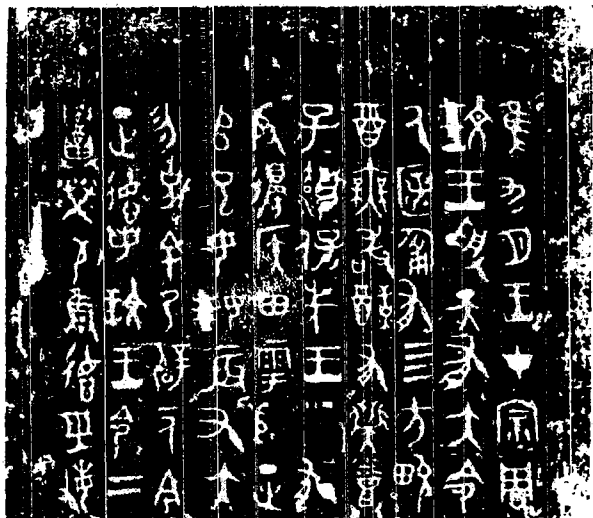 隹九月王才宗周
玟王受天有大令
厥匿匍有四方畯
酉無敢酖有祡蒸
子灋保先王有
殷邊侯田雩殷正
𠂤已女妹辰又大
勿余乃辟一人今
正德若玟王令二
召榮敬雝德巠敏